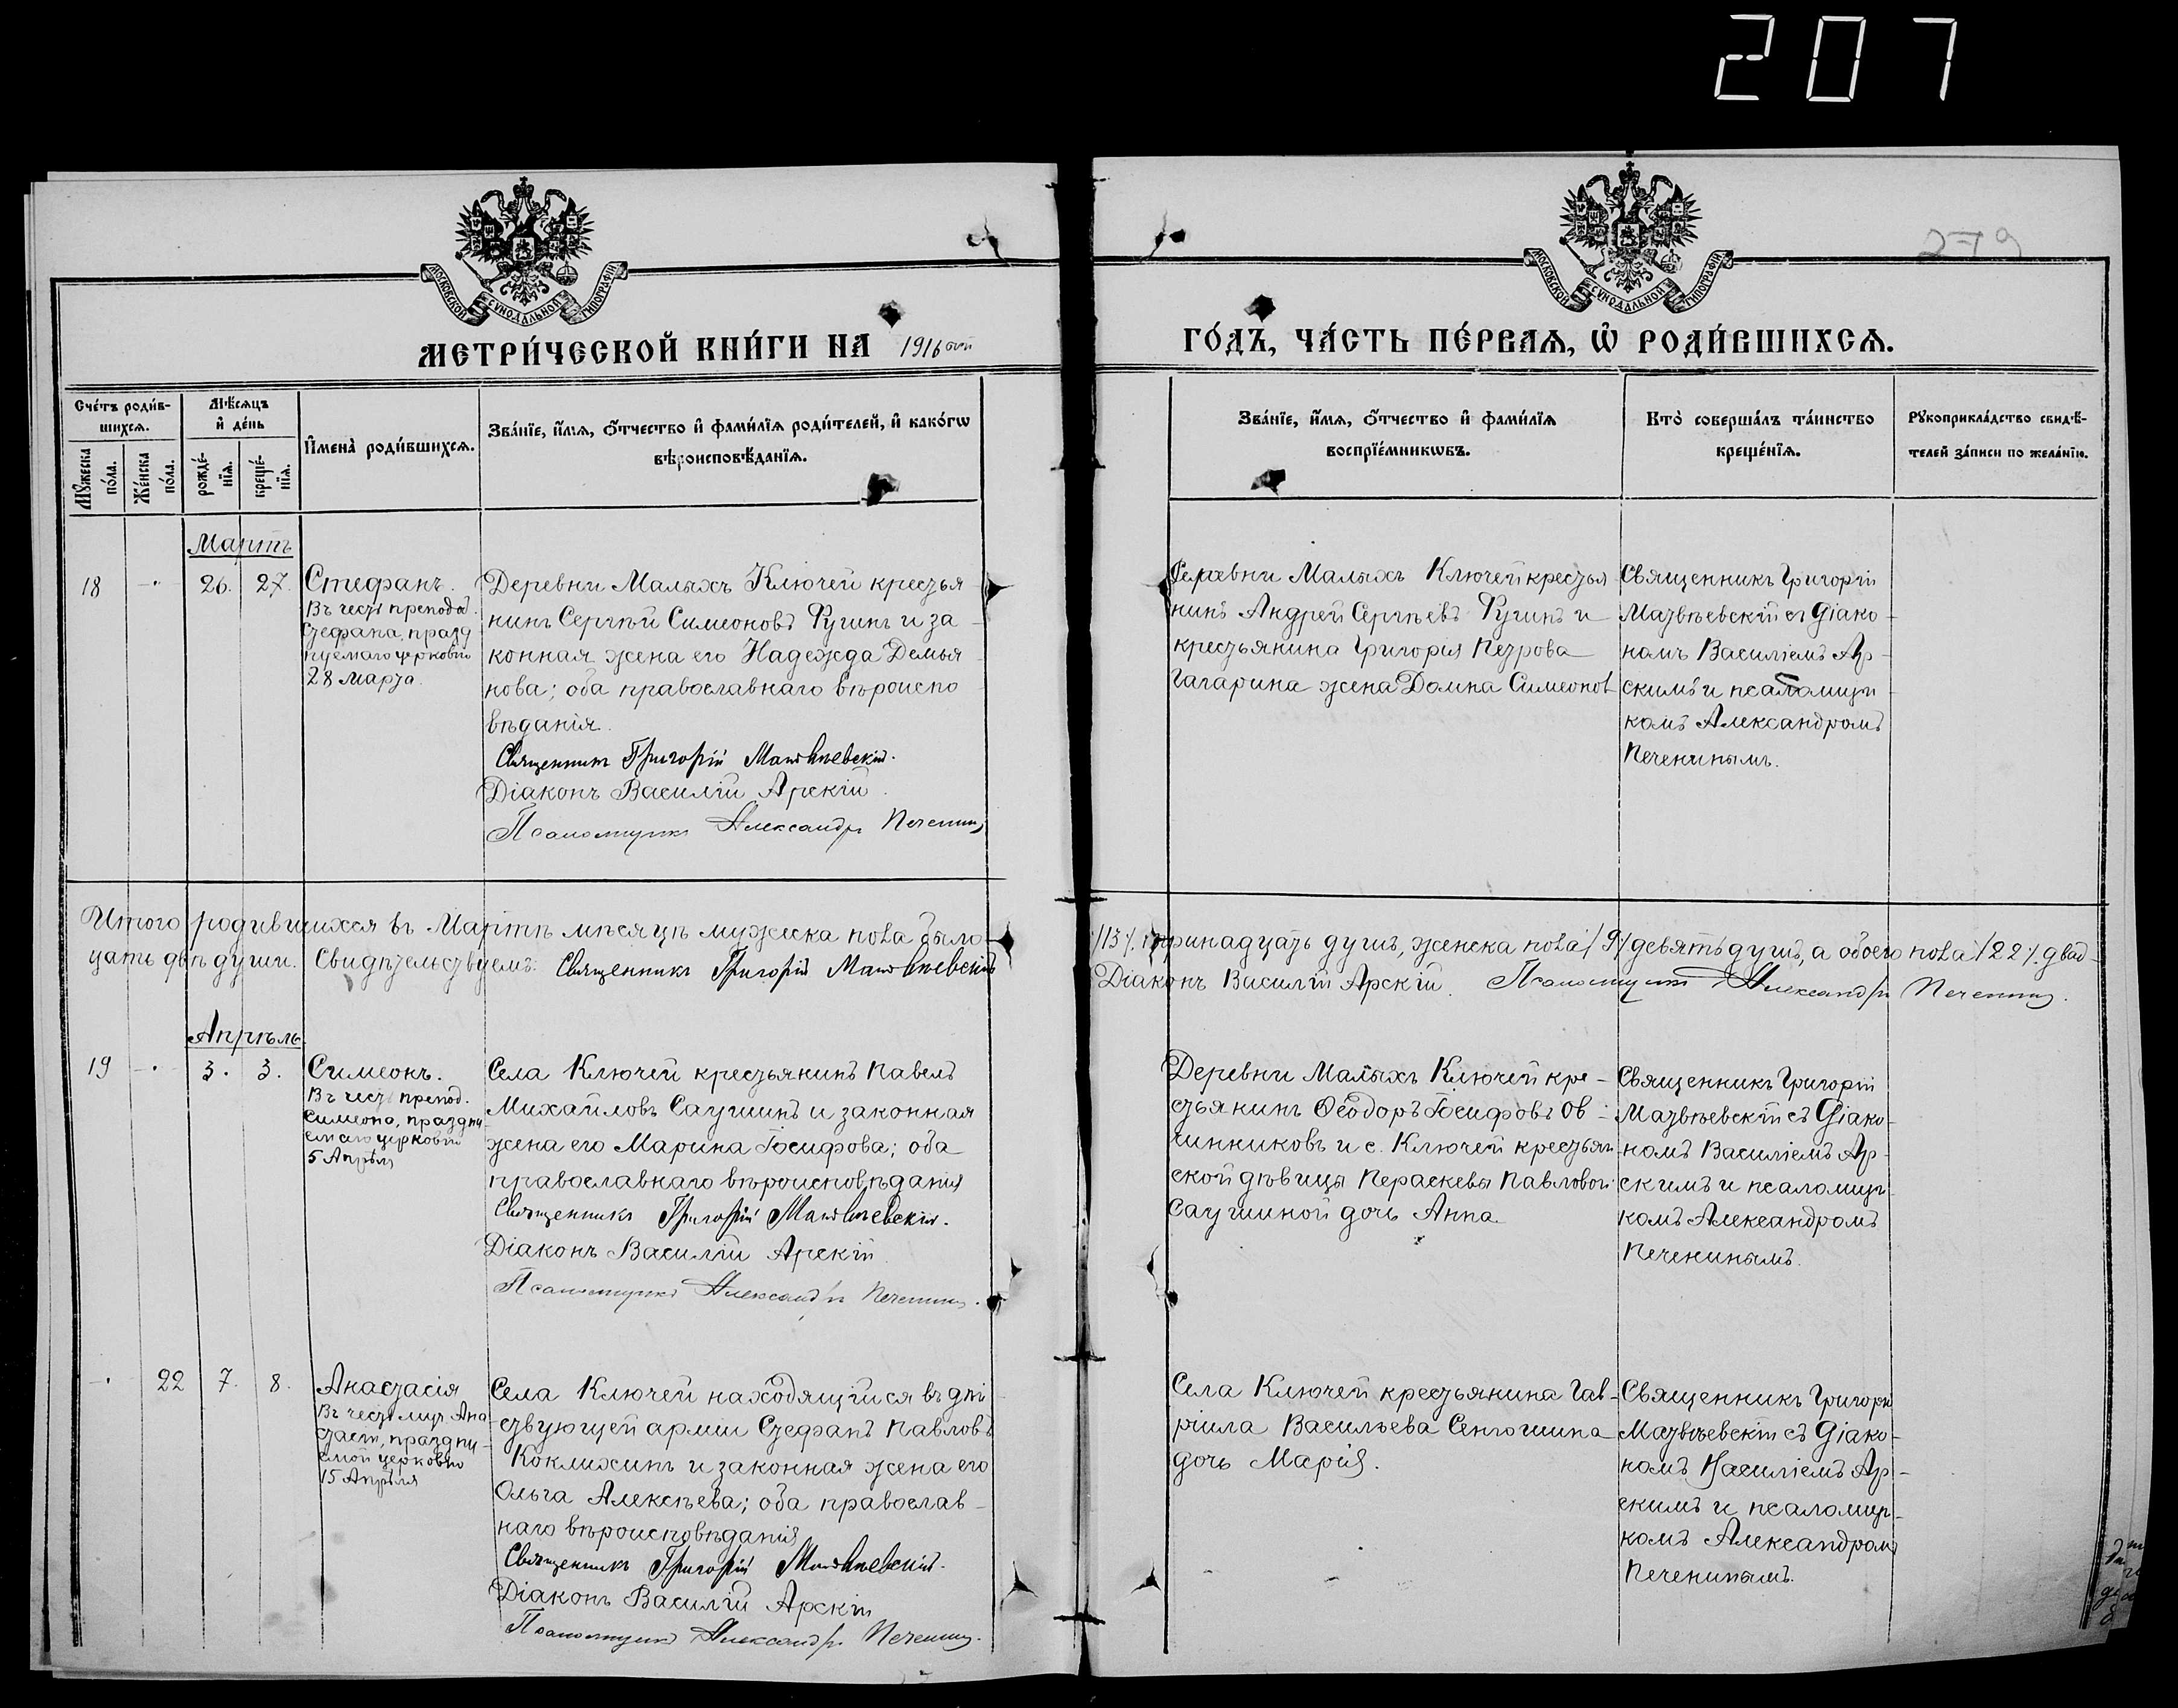 207
279
МОСКОВСКОЙ СѴНОДАЛЬНОЙ ТИПОГРАФІИ
МОСКОВСКОЙ СѴНОДАЛЬНОЙ ТИПОГРАФІИ
МЕТРИ́ЧЕСКОЙ КНИ́ГИ НА 1916 ый ГО́ДЪ, ЧА́СТЬ ПЕ́РВАѦ, Ѿ РОДИ́ВШИХСѦ.
Сче́тъ роди́в-
шихсѧ.
Мѣ́сѧцъ
и҆ де́нь
Му́жеска по́ла.
Же́нска по́ла.
рожде́-
нїѧ.
креще́-
нїѧ.
И҆мена̀ роди́вшихсѧ.
Зва́нїе, и҆́мѧ, ѻ҆́тчество и҆ фами́лїѧ роди́телей, и҆ како́гѡ
вѣроисповѣ́данїѧ.
Зва́нїе, и҆́мѧ, ѻ҆́тчество и҆ фами́лїѧ
воспрїе́мникѡвъ.
Кто̀ соверша́лъ та́инство
креще́нїѧ.
Рꙋкоприкла́дство свидѣ́-
телей за́писи по жела́нїю.
Мартъ
18 - 26. 27. Стефанъ.
Въ честь преподоб.
Стефана, празд
нуемаго церковію
28 марта.
Деревни Малыхъ Ключей крестья
нинъ Сергѣй Симеоновъ Фугинъ и за
конная жена его Надежда Демья
нова; оба православнаго вѣроиспо
вѣданія.
Священникъ Григорій Матвѣевскій.
Діаконъ Василій Арскій.
Псаломщикъ Александръ Печенинъ
Деревни Малыхъ Ключей крестья
нинъ Андрей Сергѣевъ Фугинъ и
крестьянина Григорія Петрова
Гагарина жена Домна Симеонов
Священникъ Григорій
Матвѣевскій съ діако-
номъ Василіемъ Ар-
скимъ и псаломщи
комъ Александромъ
Печенинымъ.
Итого родившихся въ Мартѣ мѣсяцѣ мужеска пола было /13/. тринадцать душъ, женска пола /9/ девять душъ, а обоего пола /22/. двад-
цать двѣ души. Свидѣтельствуемъ: Священникъ Григорій Матвѣевскій Діаконъ Василій Арскій. Псаломщикъ Александръ Печенинъ.
Апрѣль
19 - 3. 3. Симеонъ.
Въ честь препод.
Симеона, праздну
емаго церковію
5 Апрѣля
Села Ключей крестьянинъ Павелъ
Михайловъ Саушинъ и законная
жена его Марина Іосифова; оба
православнаго вѣроисповѣданія
Священникъ Григорій Матвѣевскій.
Діаконъ Василій Арскій
Псаломщикъ Александръ Печенинъ.
Деревни Малыхъ Ключей кре-
стьянинъ Ѳеодоръ Іосифовъ Ов-
чинниковъ и с. Ключей крестьян-
ской дѣвицы Параскевы Павловой
Саушиной дочь Анна.
Священникъ Григорій
Матвѣевскій съ діако-
номъ Василіемъ Ар-
скимъ и псаломщи-
комъ Александромъ
Печенинымъ.
- 22 7. 8. Анастасія
Въ честь муч. Ана-
стасіи, праздну-
емой церковію
15 Апрѣля
Села Ключей находящійся въ дѣй
ствующей арміи Стефанъ Павловъ
Коклихинъ и законная жена его
Ольга Алексѣева; оба православ-
наго вѣроисповѣданія
Священникъ Григорій Матвѣевскій.
Діаконъ Василій Арскій
Псаломщикъ Александръ Печенинъ.
Села Ключей крестьянина Гав-
ріила Васильева Сенюшина
дочь Марія.
Священникъ Григорій
Матвѣевскій съ діако-
номъ Василіемъ Ар-
скимъ и псаломщи-
комъ Александромъ
Печенинымъ.